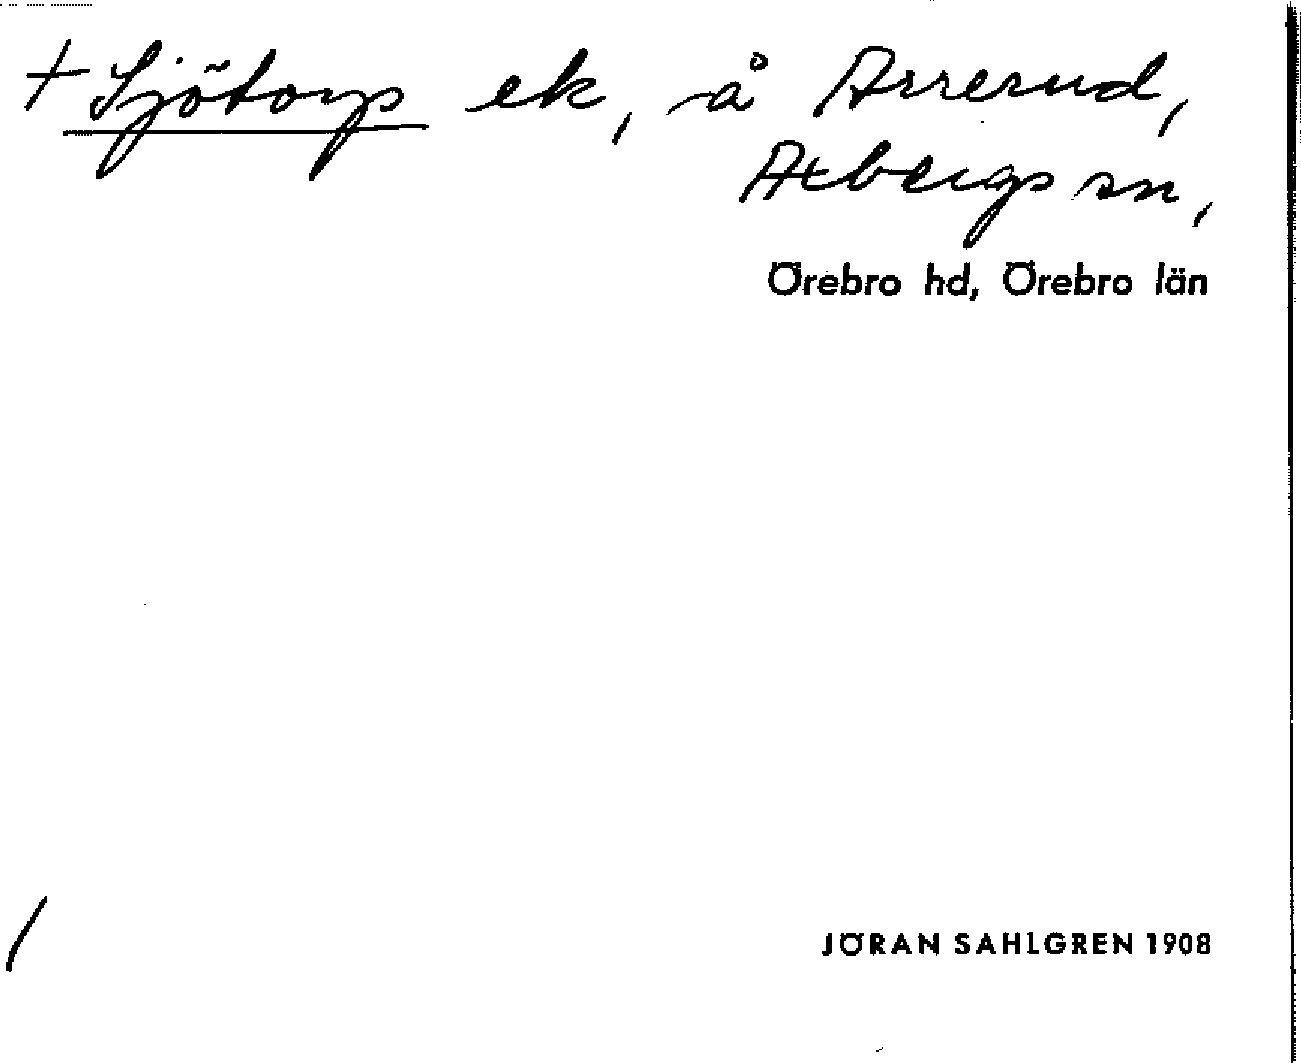 + Sjötorp ek, å Asserud,
Axbergs sn,
Örebro hd, Örebro län
/
JÖRAN SAHLGREN 1908